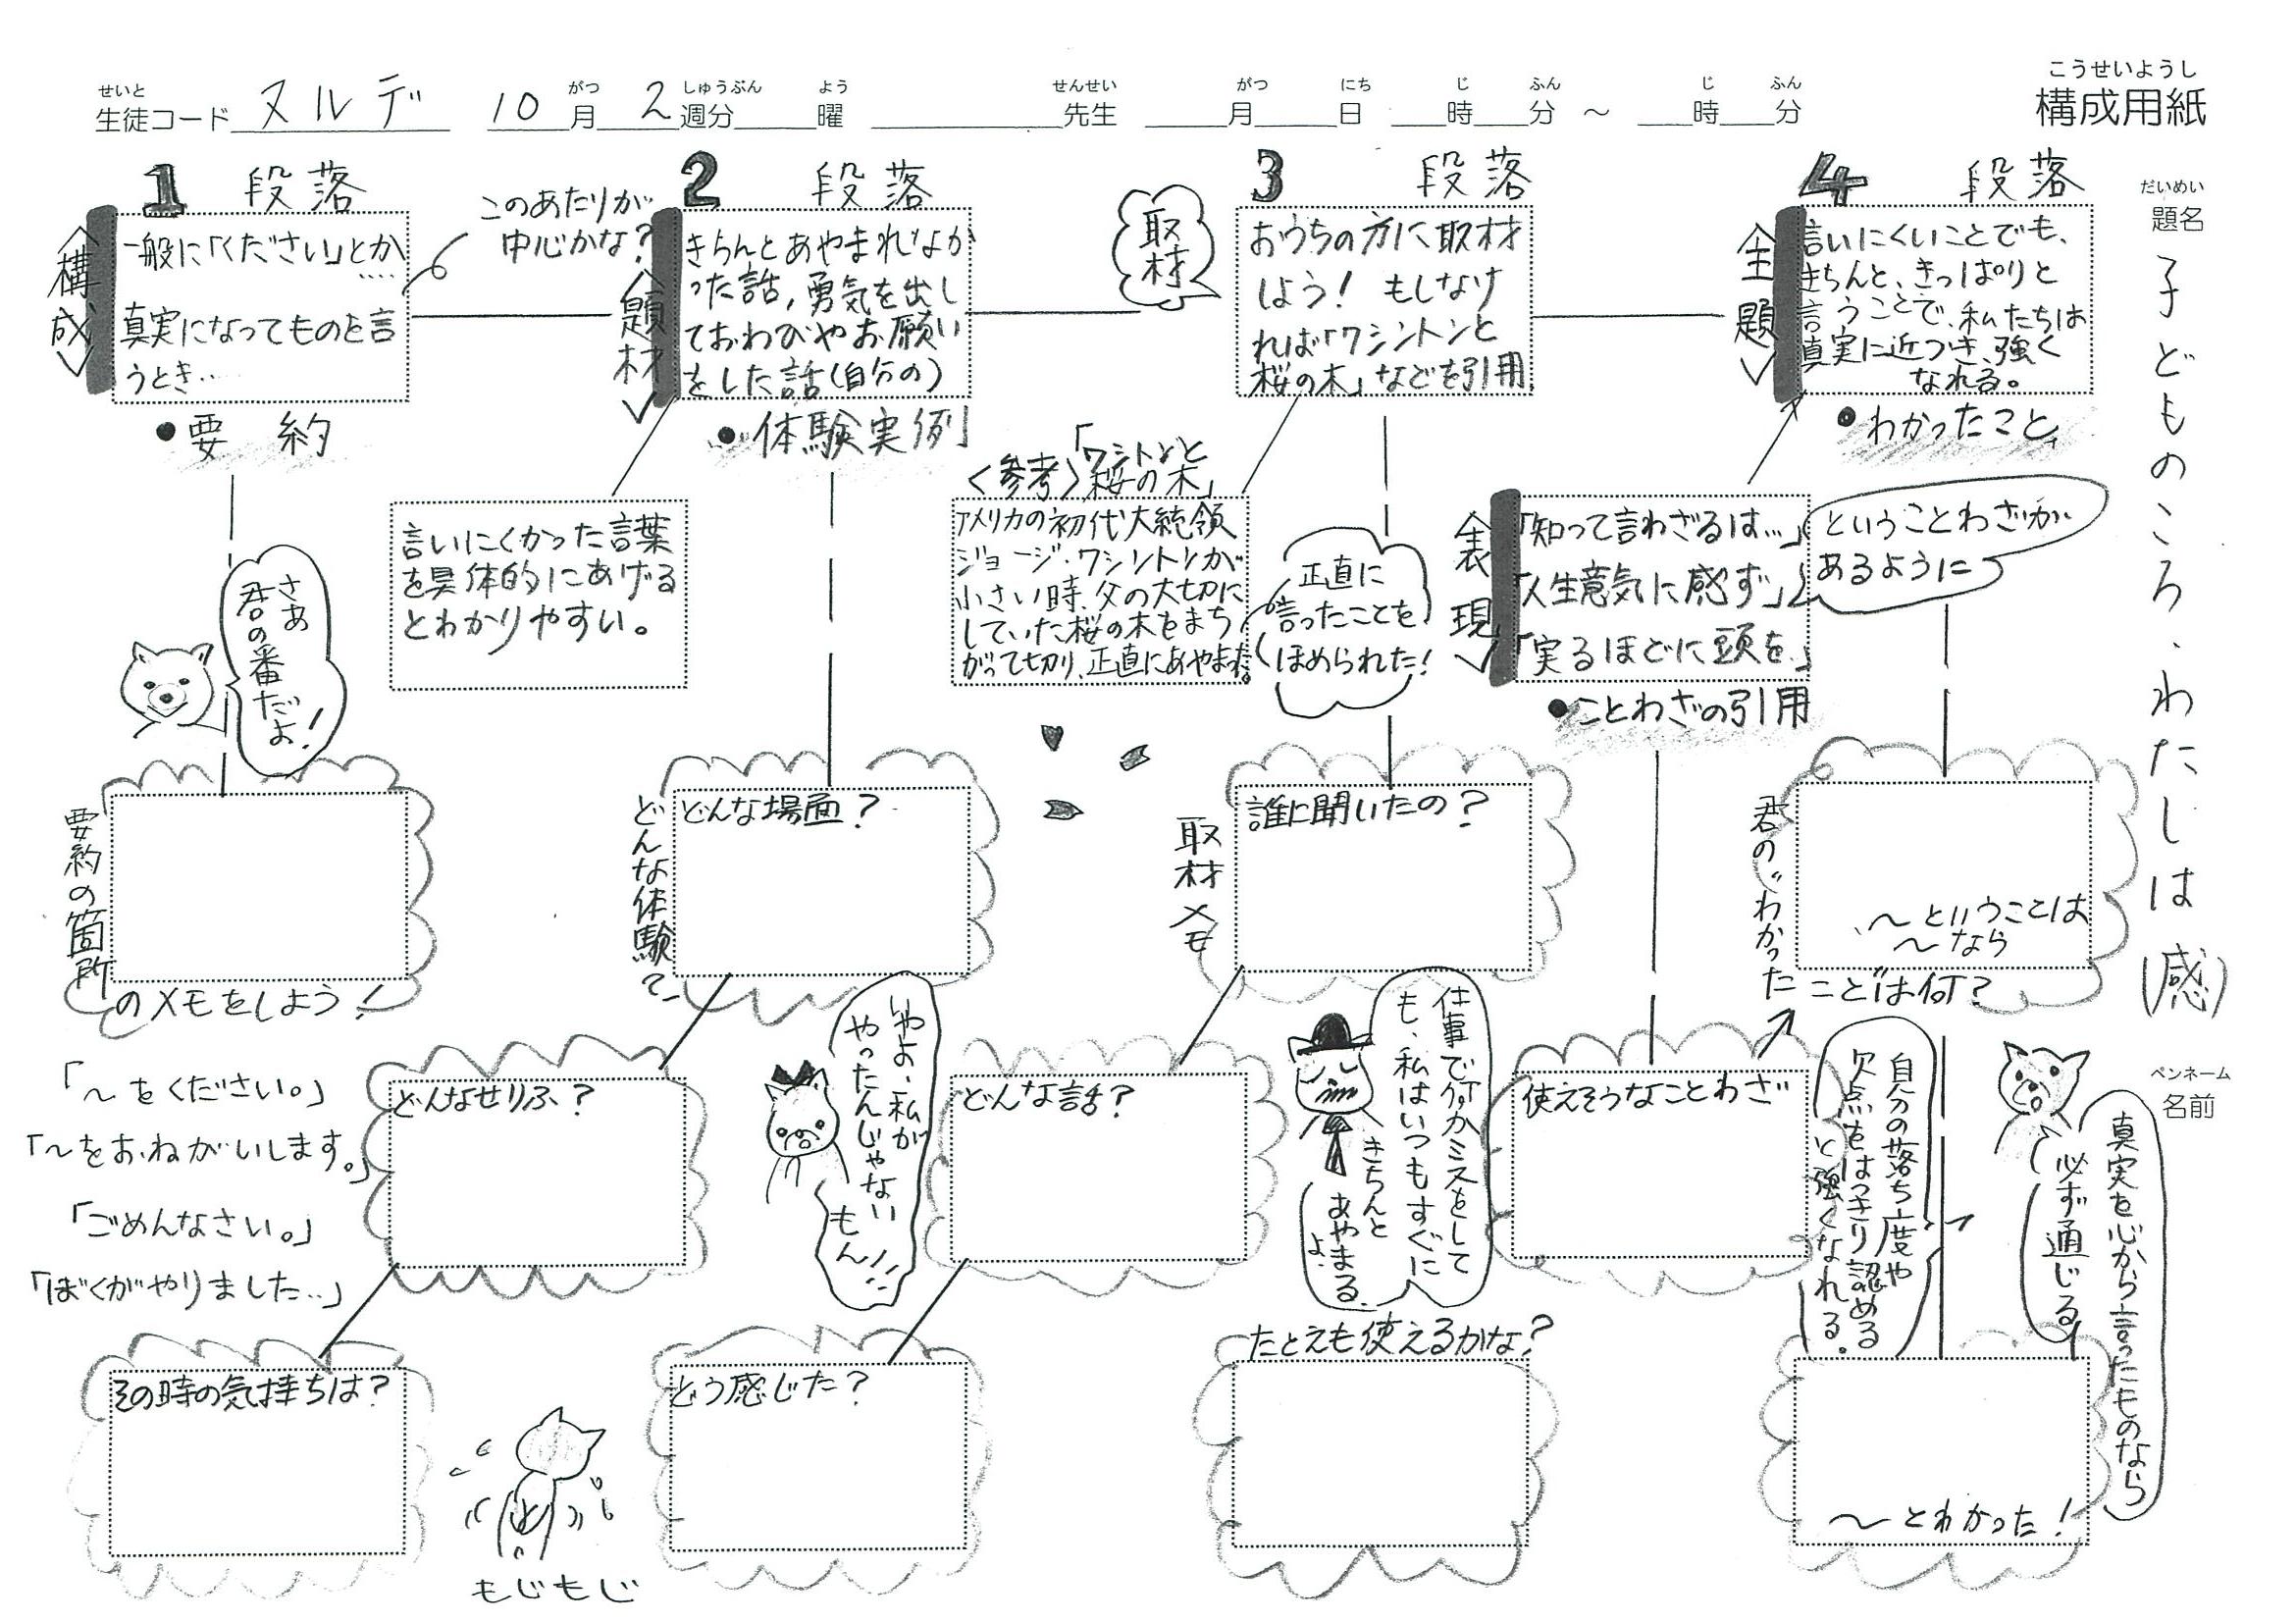 せいと がつ しゅうぶん よう せんせい がつ にち じ ふん じ ふん
生徒コード ヌルデ 10月 2週分 曜 先生 月 日 時 分 ～ 時 分
こうせいようし
構成用紙
だいめい
題名
子どものころ、わたしは(感)
ペンネーム
名前
1 段落
〈構成〉
一般に「ください」とか
‥‥
真実になってものを言
うとき‥‥
●要約
このあたりが
中心かな?
2 段落
〈題材〉
きちんとあやまれなか
った話,勇気を出し
ておわびやお願い
をした話(自分の)
●体験実例
取材
3 段落
おうちの方に取材
しよう! もしなけ
れば「ワシントンと
桜の木」などを引用
4 段落
〈主題〉
言いにくいことでも、
きちんと、きっぱりと
言うことで、私たちは
真実に近づき、強く
なれる。
●わかったこと
言いにくかった言葉
を具体的にあげる
とわかりやすい。
〈参考〉「ワシントンと
桜の木」
アメリカの初代大統領
ジョージ・ワシントンが
小さい時、父の大切に
していた桜の木をまち
がって切り、正直にあやまった。
正直に
言ったことを
ほめられた!
〈表現〉
「知って言わざるは…」
「人生意気に感ず」
「実るほどに頭を」
●ことわざの引用
ということわざが
あるように
さあ
君の番だよ!
要約の箇所
のメモをしよう!
どんな体験?
どんな場面?
取材メモ
誰に聞いたの?
君の“わかった
こと”は何?
～ということは
～なら
「～をください。」
「～をおねがいします。」
「ごめんなさい。」
「ぼくがやりました‥」
どんなせりふ?
いやよ、私が
やったんじゃない
もん!!
どんな話?
仕事で何かミスをして
も、私はいつもすぐに
きちんと
あやまる
よ.
使えそうなことわざ
自分の落ち度や
欠点をはっきり認める
と強くなれる。
真実を心から言ったものなら
必ず通じる
その時の気持ちは?
もじもじ
どう感じた?
たとえも使えるかな?
～とわかった!